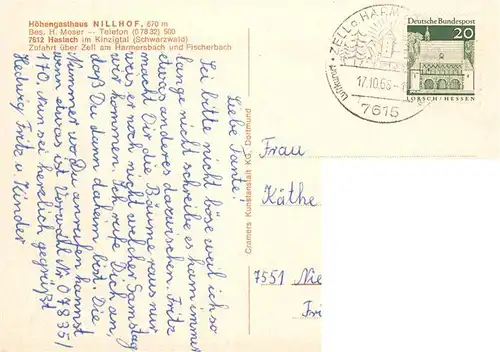 Höhengasthaus NILLHOF, 670 m
Bes. H. Moser — Telefon (07832) 500
7612 Haslach im Kinzigtal (Schwarzwald)
Zofahrt über Zell am Harmersbach und Fischerbach
Liebe Tante!
Sei bitte nicht böse weil ich so
lange nicht schreibe es kam immer
etwas anderes dazwischen. Fritz
macht Dir die Bäume raus nur
weis er noch nicht welcher Samstag
wir kommen. Ich rufe Dich an,
daß Du dann daheim bist. Die
Nummer wo Du anrufen kannst
wenn etwas ist Vorwahl Nr 07835/
170. Nun sei herzlich gegrüßt
Hedwig Fritz u. Kinder
Cramers Kunstanstalt KG, Dortmund
ZELL a. HARM
Luftkurort
17.10.68-1
7615
Deutsche Bundespost
20
LORSCH/HESSEN
Frau
Käthe
7551 Nie
Fri